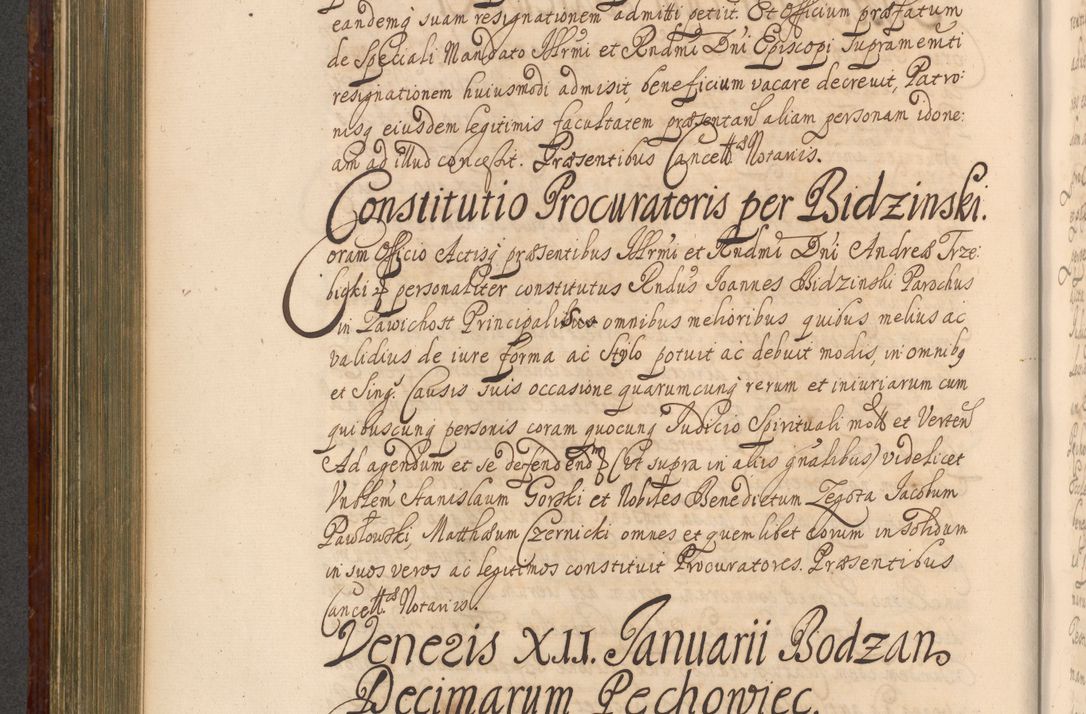 eandemq suam resignationem admitti petiit. Et Officium præfatum
de Speciali Mandato Illrmi et Rndmi Dni Episcopi supramemti
resignationem huiusmodi admisit, beneficium vacare decrevit, Patro:
nisq eiusdem legitimis facultatem præsentan aliam personam idone:
am ad illud concessit. Præsentibus Cancell. Notariis.
Constitutio Procuratoris per Bidzinski.
Coram Officio Actisq præsentibus Illrmi et Rndmi Dni Andreæ Trze:
bicki personaliter constitutus Rndus Joannes Bidzinski Parochus
in Zawichost Principalis omnibus melioribus quibus melius ac
validius de iure forma ac stylo potuit ac debuit modis, in omnibq
et Sing. Causis suis occasione quarumcunq rerum et iniuriarum cum
quibuscunq personis coram quocunq Judicio Spirituali mot et Verten
Ad agendum et se defendend (ut supra in aliis gnalibus) videlicet
Vnblem Stanislaum Gorski et Nobiles Benedictum Zegota Jacobum
Pawłowski, Matthæum Czernicki omnes et quemlibet eorum in solidum
in suos veros ac legitimos constituit Procuratores. Præsentibus
Cancell. Notariis.
Veneris XII. Januarii Bodzan
Decimarum Pechowiec.